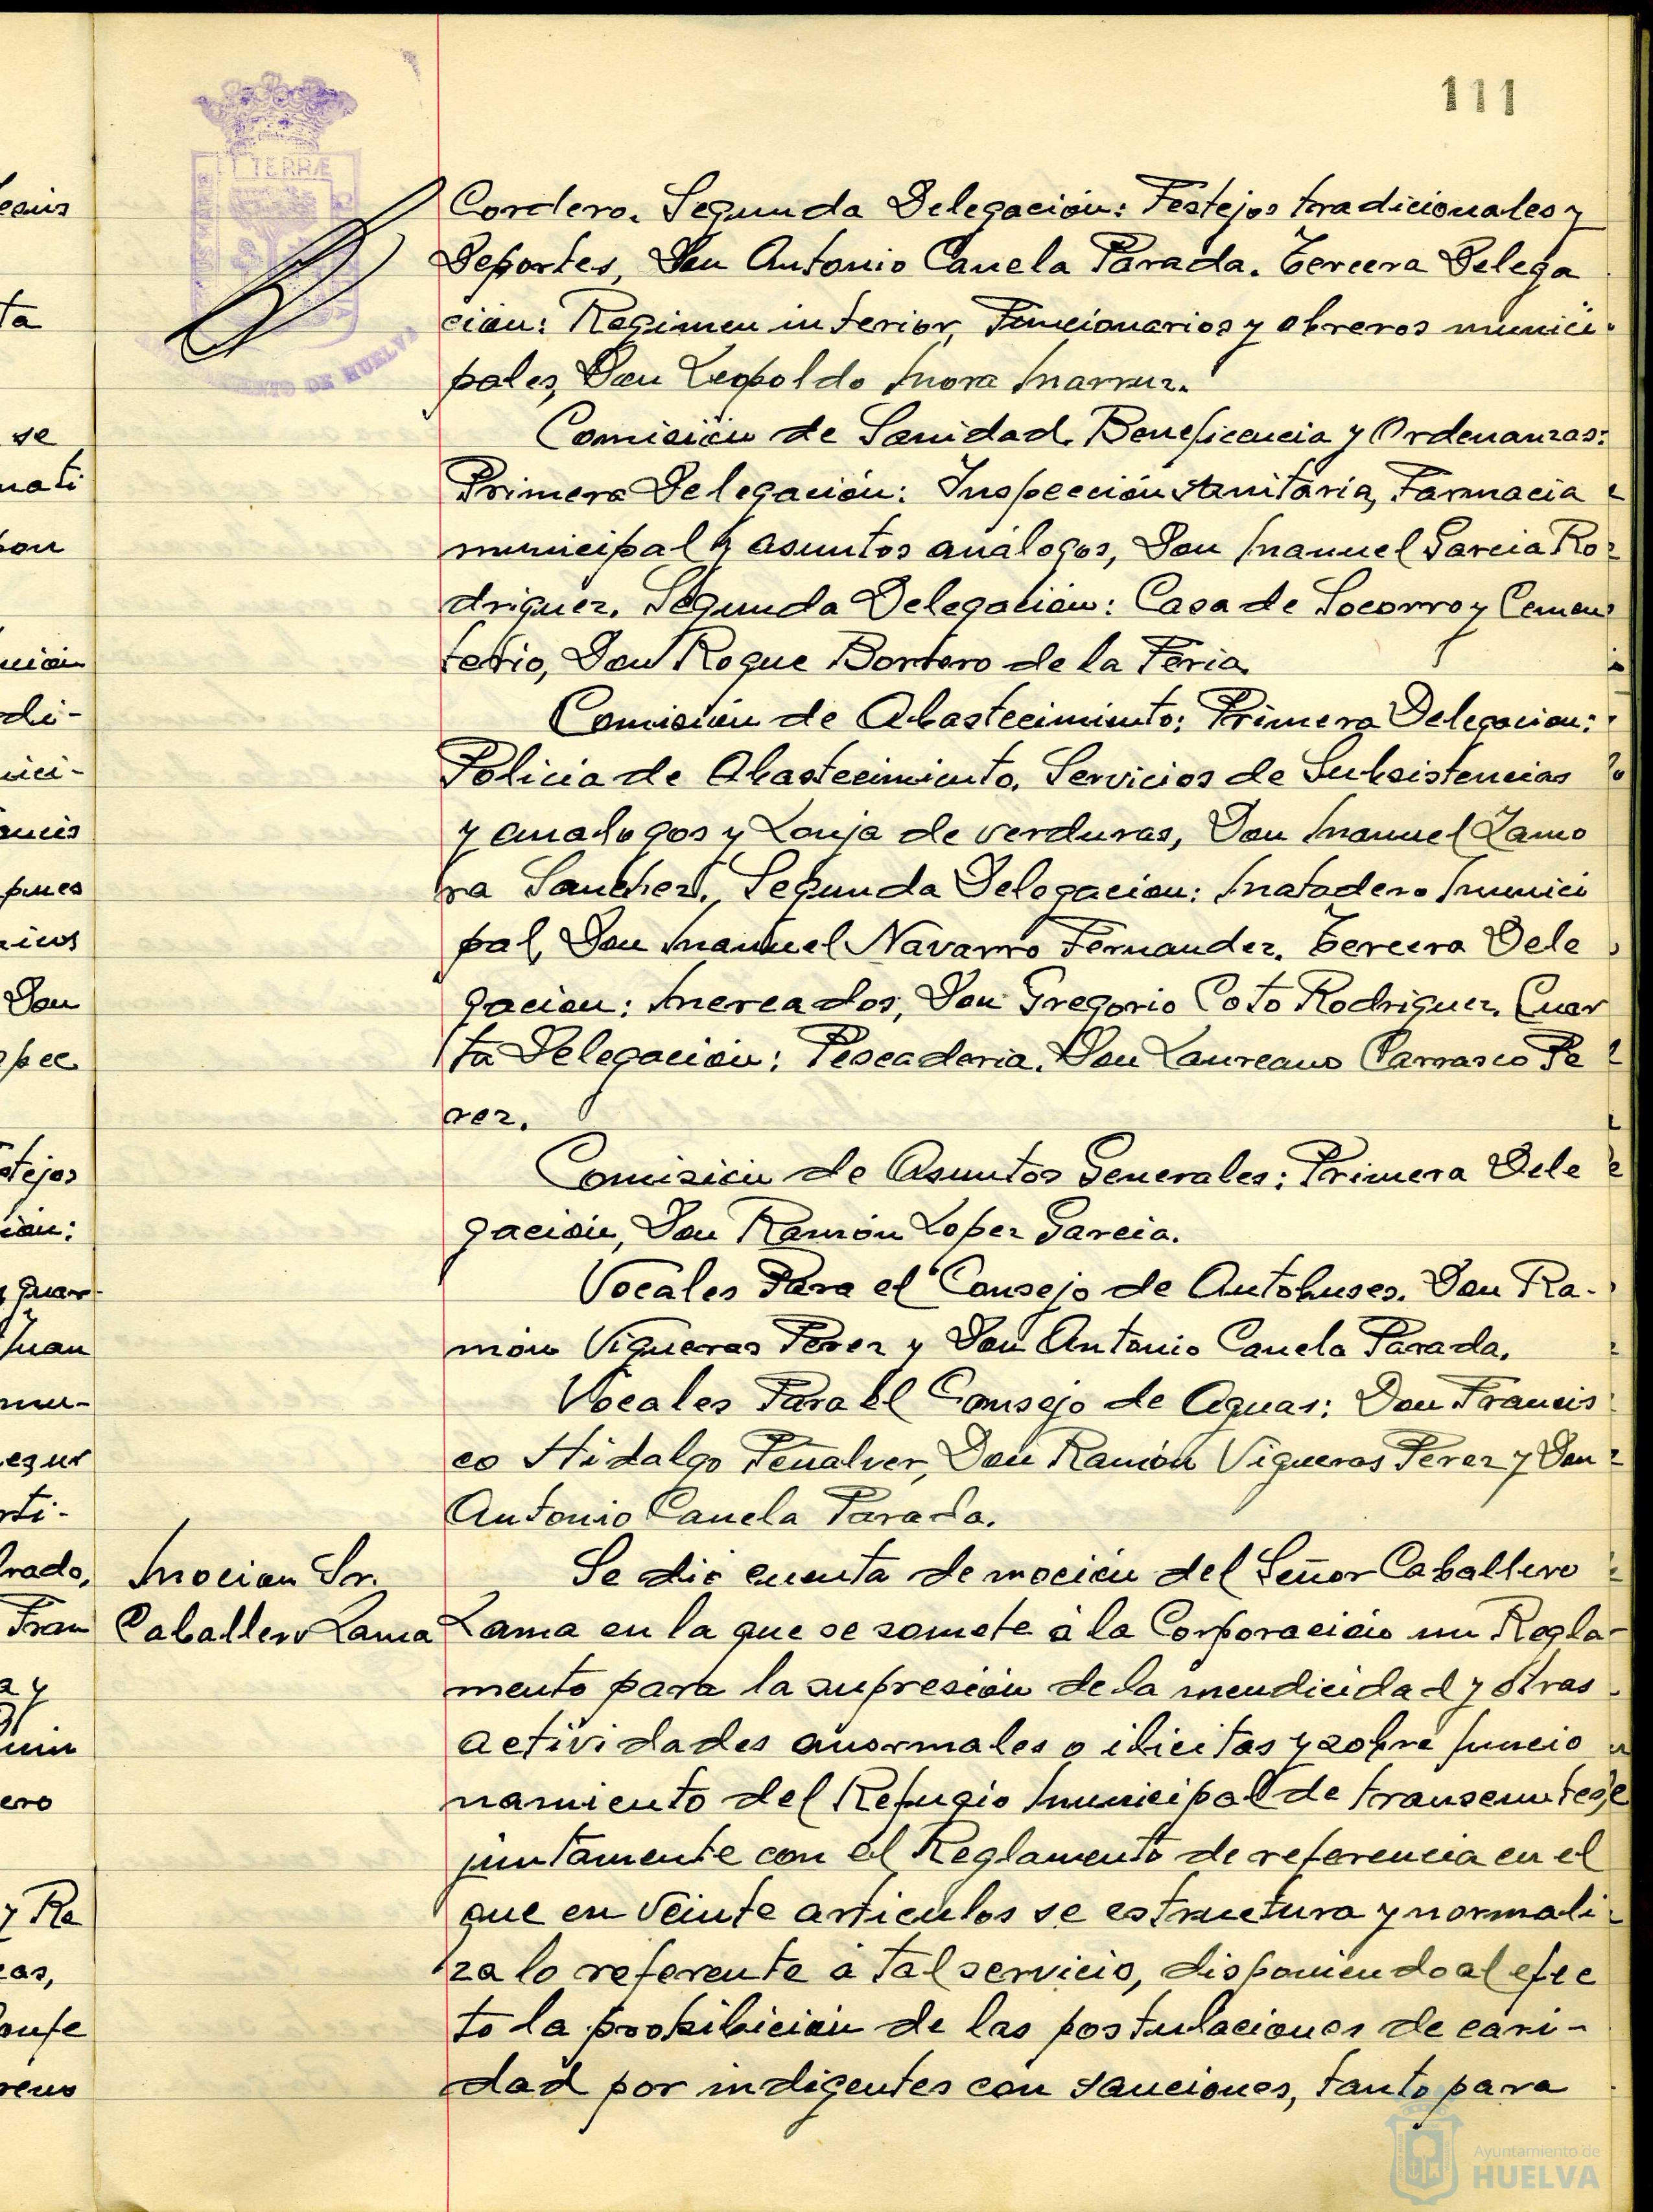 111
TERRÆ
AYUNTAMIENTO DE HUELVA
Cordero. Segunda Delegación: Festejos tradicionales y
Deportes, Don Antonio Canela Parada. Tercera Delega
ción: Regimen interior, Funcionarios y obreros munici-
pales, Don Leopoldo Mora Marruz.
Comisión de Sanidad, Beneficencia y Ordenanzas:
Primera Delegación: Inspección sanitaria, Farmacia
municipal y asuntos análogos, Don Manuel Garcia Ro-
driguez. Segunda Delegación: Casa de Socorro y Cemen
terio, Don Roque Bortero de la Feria.
Comisión de Abastecimiento: Primera Delegacion:
Policia de Abastecimiento. Servicios de Subsistencias
y analogos y Lonja de verduras, Don Manuel Zamo
ra Sanchez., Segunda Delegacion: Matadero Munici
pal, Don Manuel Navarro Fernandez. Tercera Dele
gacion: Mercados, Don Gregorio Coto Rodriguez. Cuar
ta Delegación: Pescaderia. Don Laureano Carrasco Pe
rez.
Comisión de Asuntos Generales: Primera Dele
gación, Don Ramón Lopez Garcia.
Vocales Para el Consejo de Autobuses. Don Ra-
món Vigueras Perez y Don Antonio Canela Parada.
Vocales Para el Consejo de Aguas: Don Francis
co Hidalgo Peñalver, Don Ramón Vigueras Perez y Don
Antonio Canela Parada.
Mocion Sr.
Caballero Lama
Se dió cuenta de moción del Señor Caballero
Lama en la que se somete á la Corporación un Regla-
mento para la supresión de la mendicidad y otras
actividades anormales o ilicitas y sobre funcio
namiento del Refugio Municipal de transeuntes,
juntamente con el Reglamento de referencia en el
que en veinte articulos se estructura y normali
za lo referente á tal servicio, disponiendo al efec
to la prohibición de las postulaciones de cari-
dad por indigentes con sanciones, tanto para
Ayuntamiento de
HUELVA